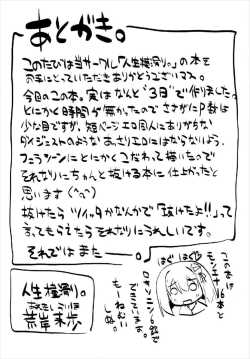 あとがき。
このたびは当サークル「人生横滑り。」の本を
お手にとっていただきありがとうございマス。
今回のこの本。実はなんと"3日"で作りました。
とにかく時間が無かったので ささかにP数は
少な目ですが、短ページエロ同人にありがちな
ダイジェストのようなあっさりエロにはならないよう、
フェラシーンにとにかくこだわって描いたので
それなりにちゃんと抜ける本に仕上がったと
思います (^q^)
抜けたら ツイッタかなんかで「抜けたよ!!」って
言ってもらえたらそれなりにうれしいです。
それではまた ー。
人生横滑り。
荒岸来歩
はぐはぐや
モンエナ16本と
ロキソニン6錠で
できています。
もーねむい
しぬ。